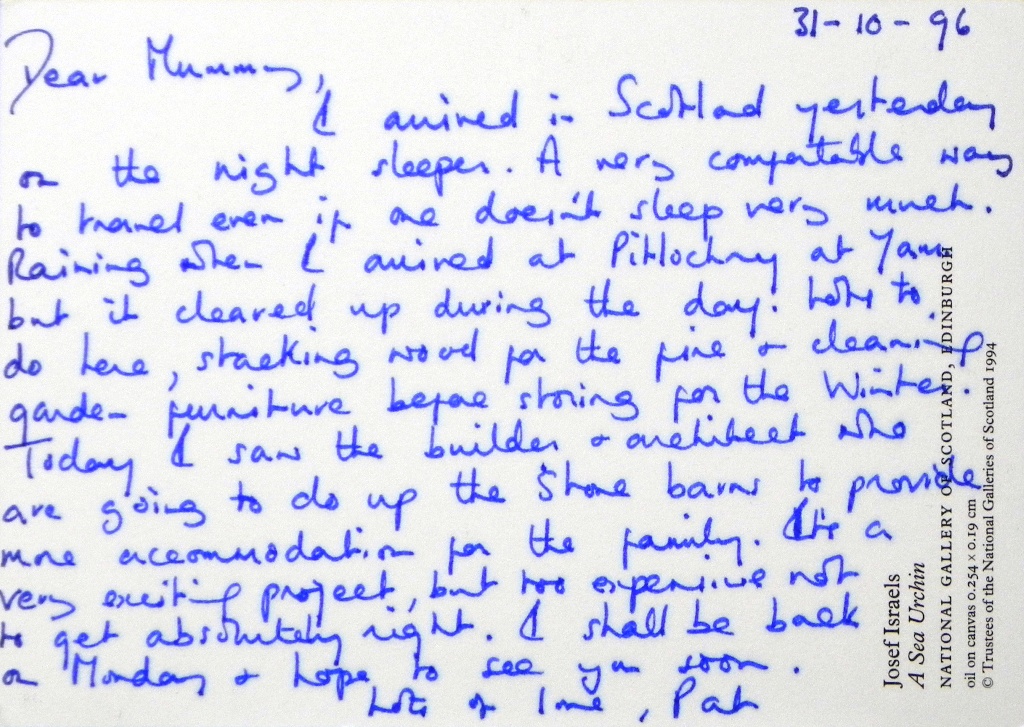 31-10-96
Dear Mummy,
I arrived in Scotland yesterday
on the night sleeper. A very comfortable way
to travel even if one doesn't sleep very much.
Raining when I arrived at Pitlochry at 7am
but it cleared up during the day. Lots to
do here, stacking wood for the fire & cleaning
garden furniture before storing for the Winter.
Today I saw the builder & architect who
are going to do up the Stone barns to provide
more accommodation for the family. It's a
very exciting project, but too expensive not
to get absolutely right. I shall be back
on Monday & hope to see you soon.
Lots of love, Pat
Josef Israels
A Sea Urchin
NATIONAL GALLERY OF SCOTLAND, EDINBURGH
oil on canvas 0.254 x 0.19 cm
© Trustees of the National Galleries of Scotland 1994